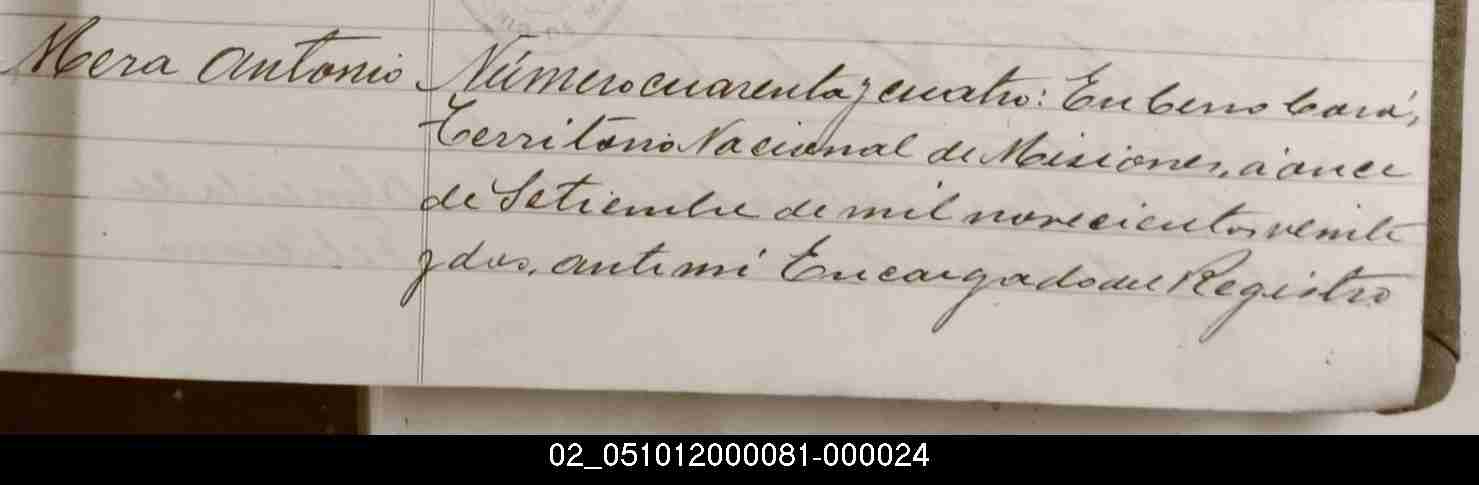 Mera Antonio
Número cuarenta y cuatro: En Cerro Corá,
Territorio Nacional de Misiones, á once
de Setiembre de mil novecientos veinte
y dos, ante mí Encargado del Registro
02_051012000081-000024